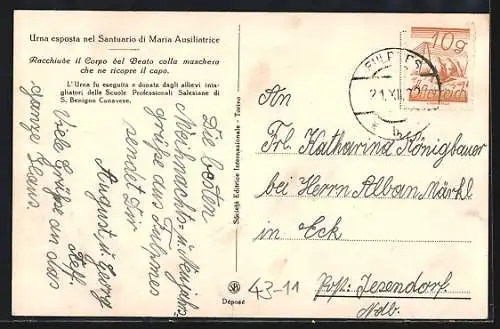 Urna esposta nel Santuario di Maria Ausiliatrice
Racchiude il Corpo del Beato colla maschera
che ne ricopre il capo.
L'Urna fu eseguita e donata dagli allievi inta-
gliatori delle Scuole Professionali Salesiane di
S. Benigno Canavese.
Die besten
Weihnachts- u. Neujahrs-
grüße aus Fulpmes
sendet Dir
August u. Georg
Viele Grüße an das
ganze Haus
Società Editrice Internazionale - Torino
Déposé
10g
FULPMES
21.XII.
An
Frl. Katharina Königbauer
bei Herrn Alban Märkl
in Eck
Post: Jesendorf.
Ndb.
43-11